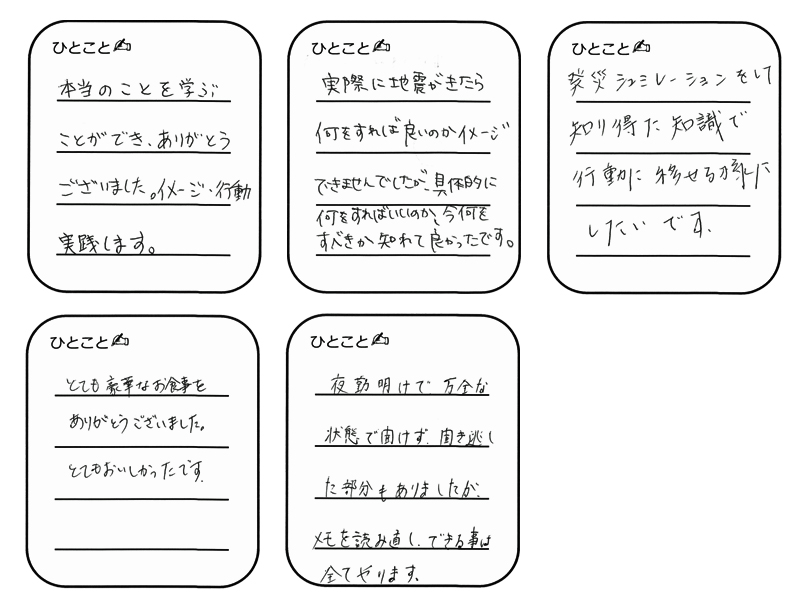 ひとこと✍
本当のことを学ぶ
ことができ、ありがとう
ございました。イメージ・行動
実践します。
ひとこと✍
実際に地震がきたら
何をすれば良いのかイメージ
できませんでしたが、具体的に
何をすればいいのか、今何を
すべきか知れて良かったです。
ひとこと✍
災シュミレーションをして
知り得た知識で
行動に移せる様に
したいです.
ひとこと✍
とても豪華なお食事を
ありがとうございました。
とてもおいしかったです.
ひとこと✍
夜勤明けで、万全な
状態で聞けず、聞き逃し
た部分もありましたが、
メモを読み直し、できる事は
全てやります.